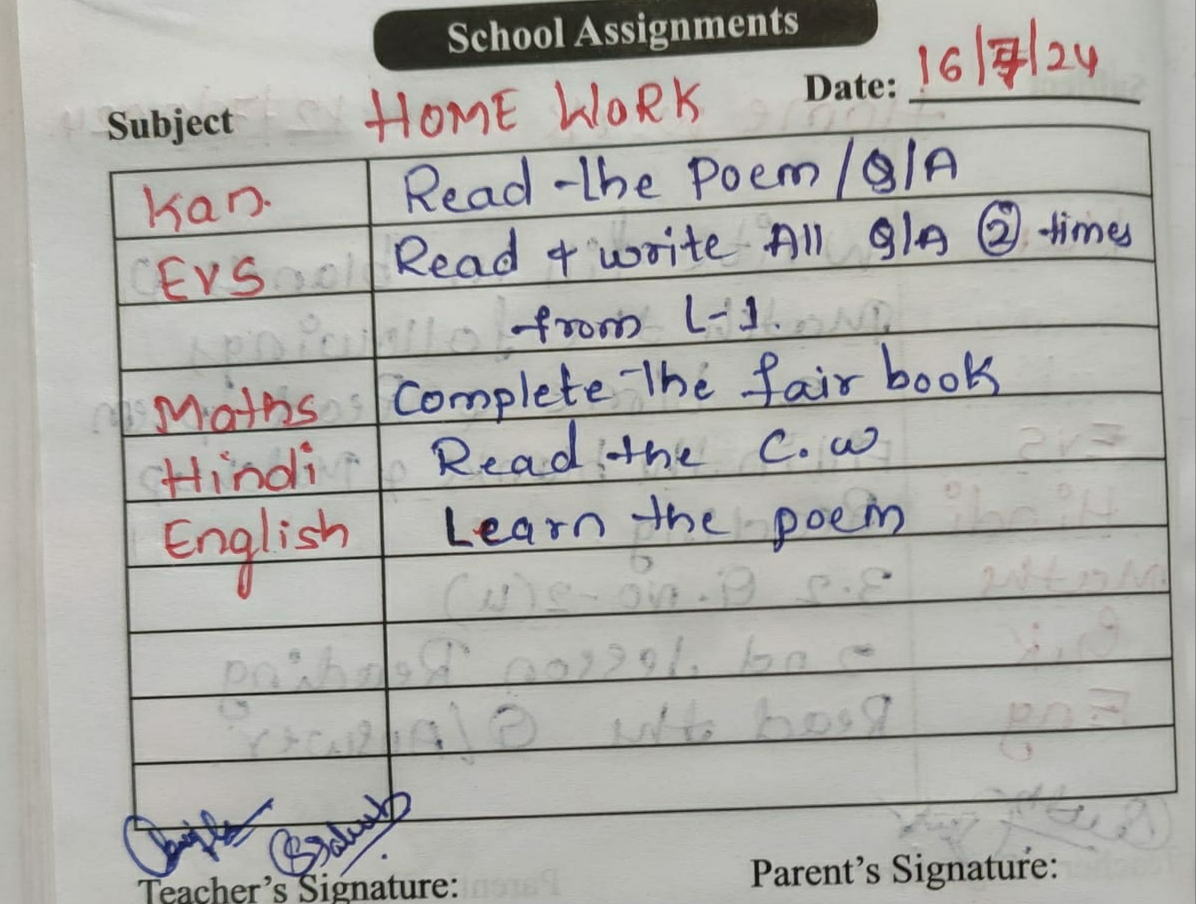 School Assignments
Subject HOME WORK Date: 16/7/24
Kan. Read the Poem/Q/A
EVS Read & write All Q/A ② times
from L-1.
Maths Complete the fair book
Hindi Read the C.W
English Learn the poem
Teacher's Signature: Parent's Signature: